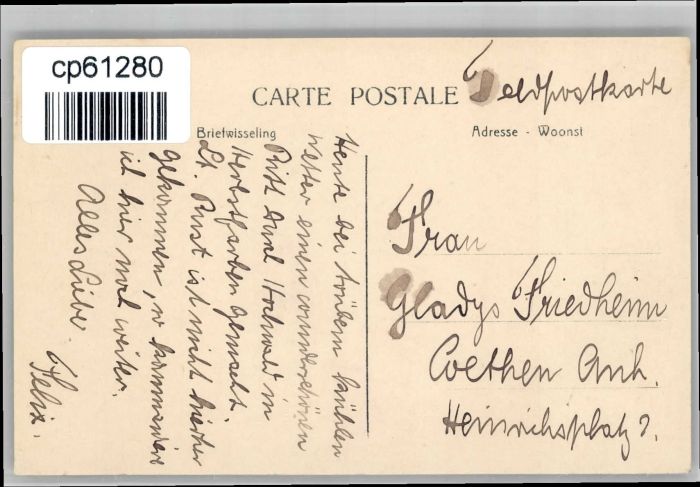 cp61280
CARTE POSTALE
Feldpostkarte
Briefwisseling
Adresse - Woonst
Heute bei trübem kühlen
Wetter einen wunderschönen
Ritt durch Hochwald in
Herbstfarben gemacht.
Lt. Rust ist nicht hierher
gekommen, so kommandiere
ich hier noch weiter.
Alles Liebe.
Felix.
Frau
Gladys Friedheim
Coethen Anh.
Heinrichsplatz